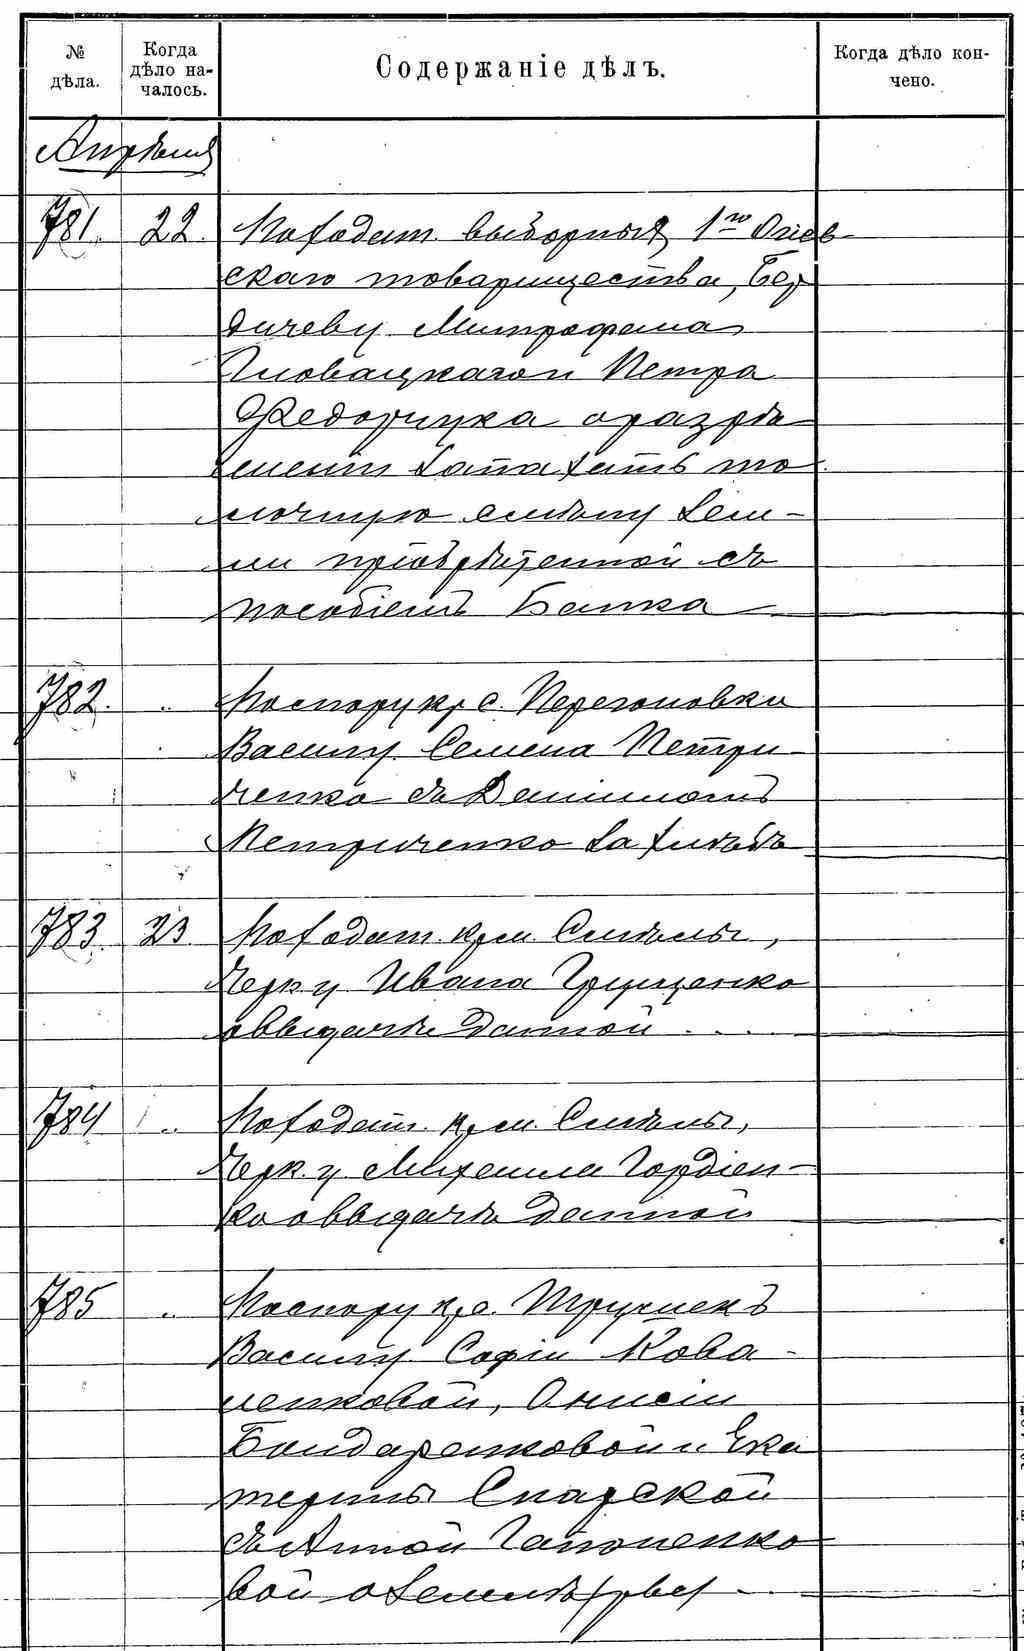 № дѣла.
Когда дѣло на-
чалось.
Содержаніе дѣлъ.
Когда дѣло кон-
чено.
Апрѣля
781. 22. По ходат. выборныя, 1го
скаго товарищества, Бер
дичев у Митрофана
Гловацкаго и Петра
Федорчука о разрѣ
шеніи запахать то
лочную смѣну зем-
ли пріобрѣтенной съ
пособіемъ Банка
782. " По спору кр. с. Перегоновки
Васил у. Семена Петри-
ченко съ Даниломъ
Петриченко за хлѣбъ
783. 23. По ходат. кр. м. Смѣлы,
Черк у. Ивана Грищенко
о выдачѣ данной . . .
784 " По ходат. кр. м. Смѣлы,
Черк. у. Михаила Гордіен-
ко о выдачѣ данной
785 " По спору кр. с.
Васил у. Софіи Кова-
ленковой, Анисіи
Бондаренковой и Ека
терины Скарской
съ Анной Гапоненко
вой о землѣ